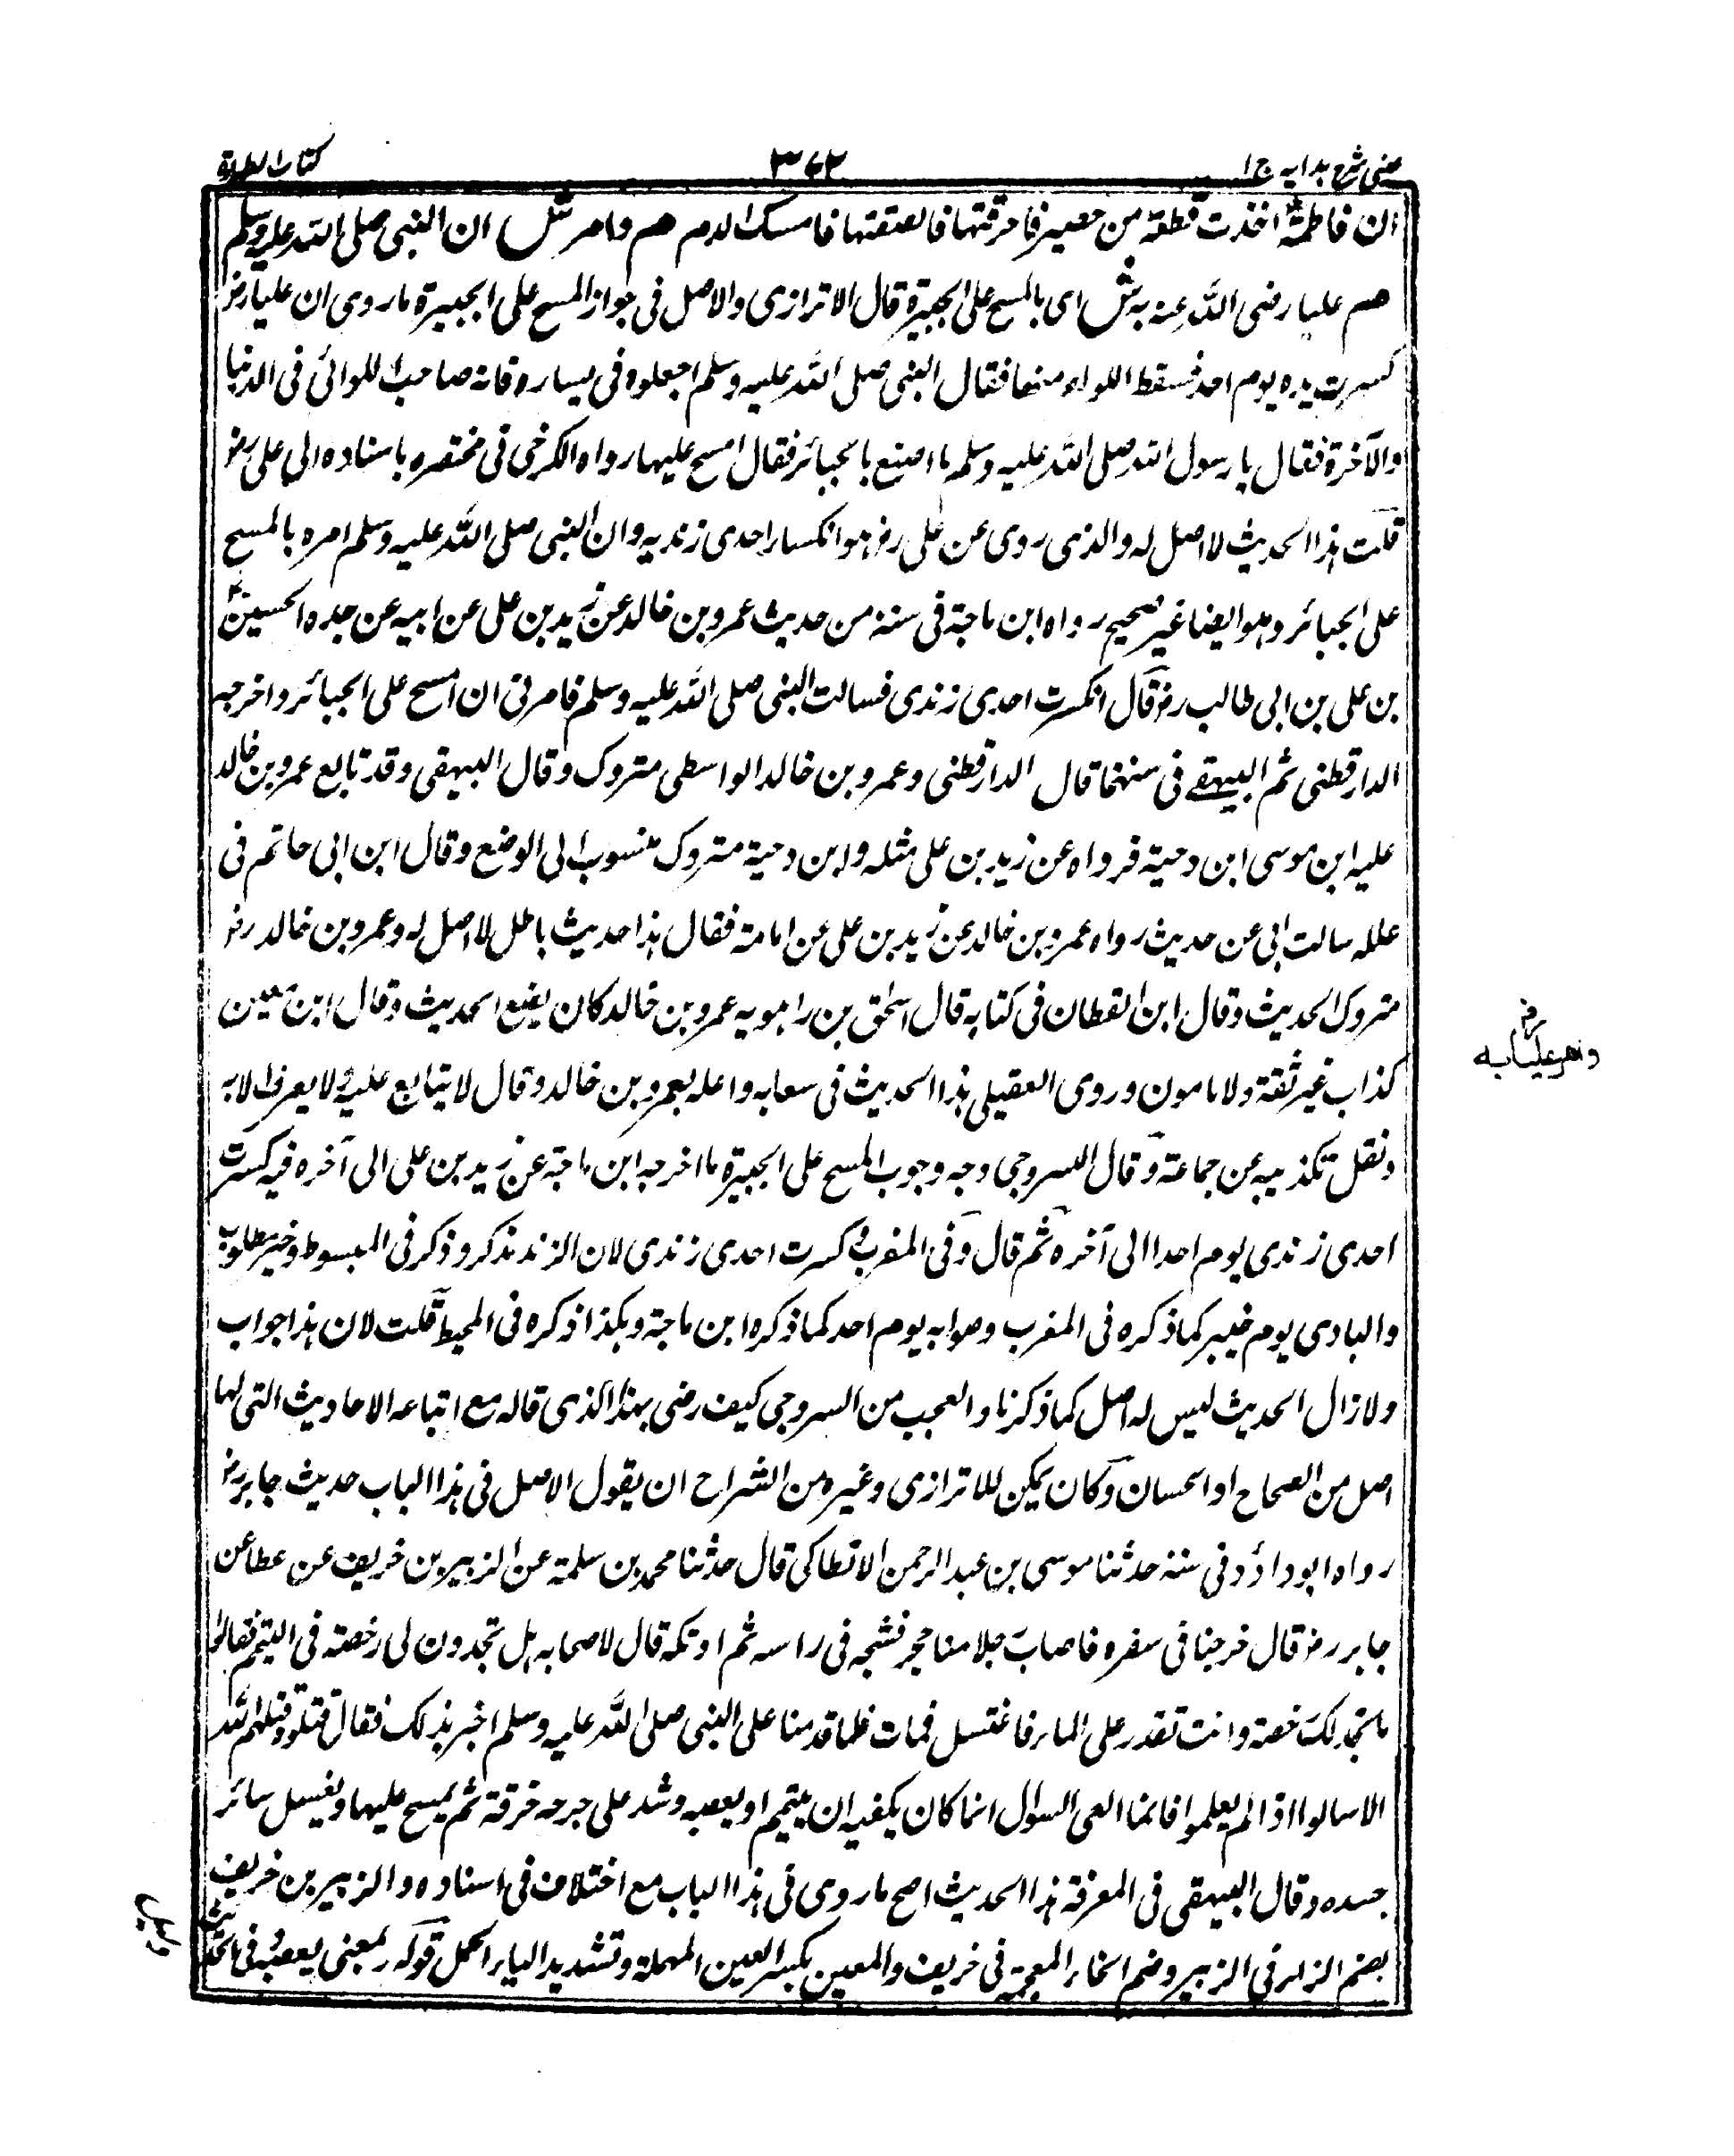 عینی شرح ہدایہ ج ا
٣٦٢
کتاب الطہارۃ
ان فاطمۃؓ اخذت قطعۃ من حصیر فاحرقتہا فالصقتہا فامسک الدم ھم وامر ش ان النبی صلی اللہ علیہ وسلم
ھم علیا رضی اللہ عنہ بہ ش ای بالمسح علی الجبیرۃ قال الاترازی والاصل فی جواز المسح علی الجبیرۃ ما روی ان علیا رضہ
کسرت یدہ یوم احد فسقط اللواء منہا فقال النبی صلی اللہ علیہ وسلم اجعلوہ فی یسارہ فانہ صاحب اللوائی فی الدنیا
والآخرۃ فقال یا رسول اللہ صلی اللہ علیہ وسلم ما اصنع بالجبائر فقال امسح علیہا رواہ الکرخی فی مختصرہ باسنادہ الی علی رضہ
قلت ہذا الحدیث لا اصل لہ والذی روی عن علی رضہ ہو انکسار احدی زندیہ وان النبی صلی اللہ علیہ وسلم امرہ بالمسح
علی الجبائر وہو ایضا غیر صحیح رواہ ابن ماجۃ فی سننہ من حدیث عمرو بن خالد عن زید بن علی عن ابیہ عن جدہ الحسینؓ
بن علی بن ابی طالب رضہ قال انکسرت احدی زندی فسالت النبی صلی اللہ علیہ وسلم فامرنی ان امسح علی الجبائر واخرجہ
الدارقطنی ثم البیہقے فی سننہما قال الدارقطنی وعمرو بن خالد الواسطی متروک وقال البیہقی وقد تابع عمرو بن خالد
علیہ ابن موسی ابن دحیۃ فرواہ عن زید بن علی مثلہ وابن دحیۃ متروک منسوب الی الوضع وقال ابن ابی حاتم فی
عللہ سالت ابی عن حدیث رواہ عمرو بن خالد عن زید بن علی عن امامۃ فقال ہذا حدیث باطل لا اصل لہ وعمرو بن خالد رضہ
متروک الحدیث وقال ابن القطان فی کتابہ قال اسحٰق بن راہویہ عمرو بن خالد کان یضع الحدیث وقال ابن معین
کذاب غیر ثقۃ ولا مامون وروی العقیلی ہذا الحدیث فی سعابہ واعلہ بعمرو بن خالد وقال لا یتابع علیہ ولا یعرف الا بہ
ونقل تکذیبہ عن جماعۃ وقال السروجی وجہ وجوب المسح علی الجبیرۃ ما اخرجہ ابن ماجۃ عن زید بن علی الی آخرہ فیہ کسرت
احدی زندی یوم احدا الی آخرہ ثم قال وفی المغرب کسرت احدی زندی لان الزند یذکر وذکر فی المبسوط وخیر مطلوب
والبادی یوم خیبر کما ذکرہ فی المغرب وصوابہ یوم احد کما ذکرہ ابن ماجۃ وہکذا ذکرہ فی المحیط قلت لان ہذا جواب
ولا زال الحدیث لیس لہ اصل کما ذکرنا والعجب من السروجی کیف رضی بہذا الذی قالہ مع اتباعہ الاحادیث التی لہا
اصل من الصحاح او الحسان وکان یمکن للاترازی وغیرہ من الشراح ان یقول الاصل فی ہذا الباب حدیث جابر رضہ
رواہ ابوداؤد فی سننہ حدثنا موسی بن عبد الرحمن الانطاکی قال حدثنا محمد بن سلمۃ عن الزبیر بن خریف عن عطا عن
جابر رضہ قال خرجنا فی سفرہ فاصاب رجلا منا حجر فشجہ فی راسہ ثم احتلم قال لاصحابہ ہل تجدون لی رخصتہ فی التیمم فقالوا
ما نجد لک رخصۃ وانت تقدر علی الماء فاغتسل فمات فلما قدمنا علی النبی صلی اللہ علیہ وسلم اخبر بذلک فقال قتلوہ قتلہم اللہ
الا سالوا اذا لم یعلموا فانما العی السوال انما کان یکفیہ ان یتیمم او یعصبہ وشد علی جرحہ خرقۃ ثم یمسح علیہا ویغسل سائر
جسدہ وقال البیہقی فی المعرفۃ ہذا الحدیث اصح ما روی فی ہذا الباب مع اختلاف فی اسنادہ والزبیر بن خریف
بضم الزاء فی الزبیر وضم الخاء المعجمۃ فی خریف والمعین بکسر العین المہملۃ وتشدید الیاء الجہل قولہ بمعنی یعصب فی
وامر علیا بہ